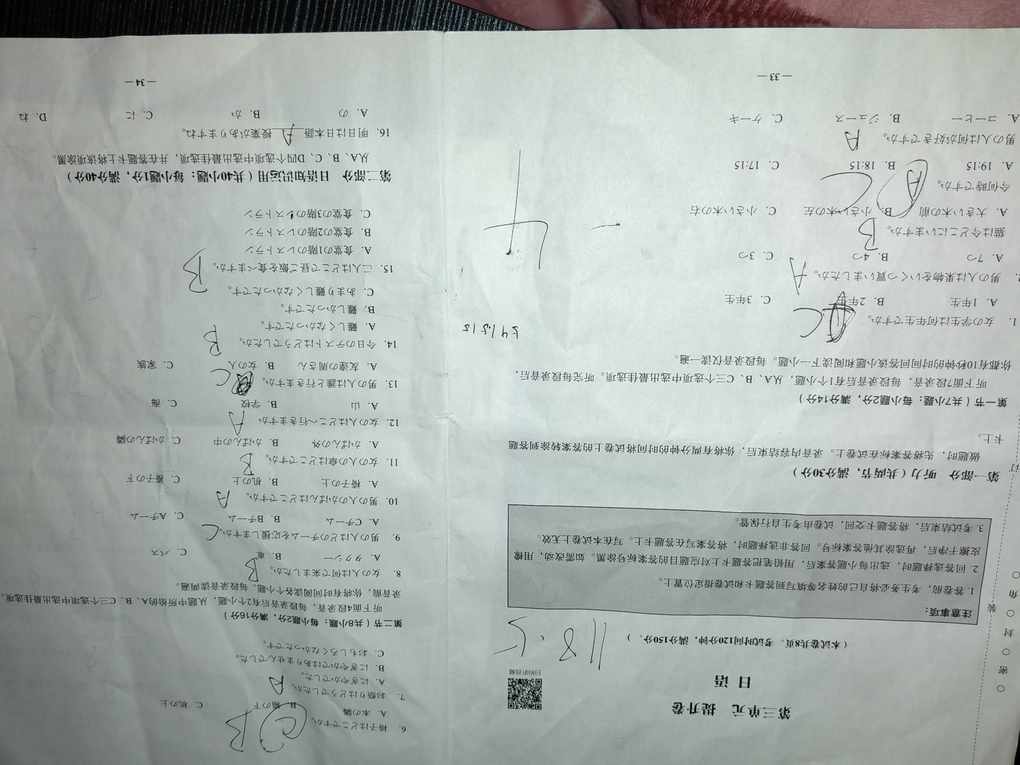 第三单元 提升卷
日 语
扫码听音频
（本试卷共8页，考试时间120分钟，满分150分。）
118.5
注意事项：
1. 答卷前，考生务必将自己的姓名等填写到答题卡和试卷指定位置上。
2. 回答选择题时，选出每小题答案后，用铅笔把答题卡上对应题目的答案标号涂黑。如需改动，用橡
皮擦干净后，再选涂其他答案标号。回答非选择题时，将答案写在答题卡上。写在本试卷上无效。
3. 考试结束后，将答题卡交回，试卷由考生自行保管。
第一部分 听力（共两节，满分30分）
做题时，先将答案标在试卷上。录音内容结束后，你将有两分钟的时间将试卷上的答案转涂到答题
卡上。
第一节（共7小题；每小题2分，满分14分）
听下面7段录音，每段录音后有1个小题，从A、B、C三个选项中选出最佳选项。听完每段录音后，
你都有10秒钟的时间回答该小题和阅读下一小题。每段录音仅读一遍。
1. 女の学生は何年生ですか。 C
A. 1年生 B. 2年生 C. 3年生
男の人は果物をいくつ買いましたか。 A
A. 7つ B. 4つ C. 3つ
猫は今どこにいますか。 B
A. 大きい木の前 B. 小さい木の左 C. 小さい木の右
今何時ですか。 A C
A. 19:15 B. 18:15 C. 17:15
男の人は何が好きですか。 A
A. コーヒー B. ジュース C. ケーキ
— 33 —
6. 椅子はどこですか。 C B
A. 木の隣 B. 机の下 C. 机の上
7. お祭りはどうでしたか。 A
A. にぎやかでした。
B. にぎやかではありませんでした。
C. おもしろくなかったです。
第二节（共8小题；每小题2分，满分16分）
听下面4段录音，每段录音后有2个小题，从题中所给的A、B、C三个选项中选出最佳选项。
录音前，你将有时间阅读各个小题。每段录音读两遍。
8. 女の人は何で来ましたか。 B
A. タクシー B. 車 C. バス
9. 男の人はどのチームを応援しますか。 C
A. Cチーム B. Bチーム C. Aチーム
10. 男の人のかばんはどこですか。 A
A. 椅子の上 B. 机の上 C. 椅子の下
11. 女の人の傘はどこですか。 B
A. かばんの外 B. かばんの中 C. かばんの隣
12. 女の人はどこへ行きますか。 A
A. 山 B. 学校 C. 海
13. 男の人は誰と行きますか。 C
A. 友達の周さん B. 女の人 C. 家族
14. 今日のテストはどうでしたか。 B
A. 難しくなかったです。
B. 難しかったです。
C. あまり難しくなかったです。
15. 二人はどこで昼ご飯を食べますか。 B
A. 食堂の1階のレストラン
B. 食堂の2階のレストラン
C. 食堂の3階のレストラン
第二部分 日语知识运用（共40小题；每小题1分，满分40分）
从A、B、C、D四个选项中选出最佳选项，并在答题卡上将该项涂黑。
16. 明日は日本語 A 授業がありますね。
A. の B. か C. に D. ね
— 34 —